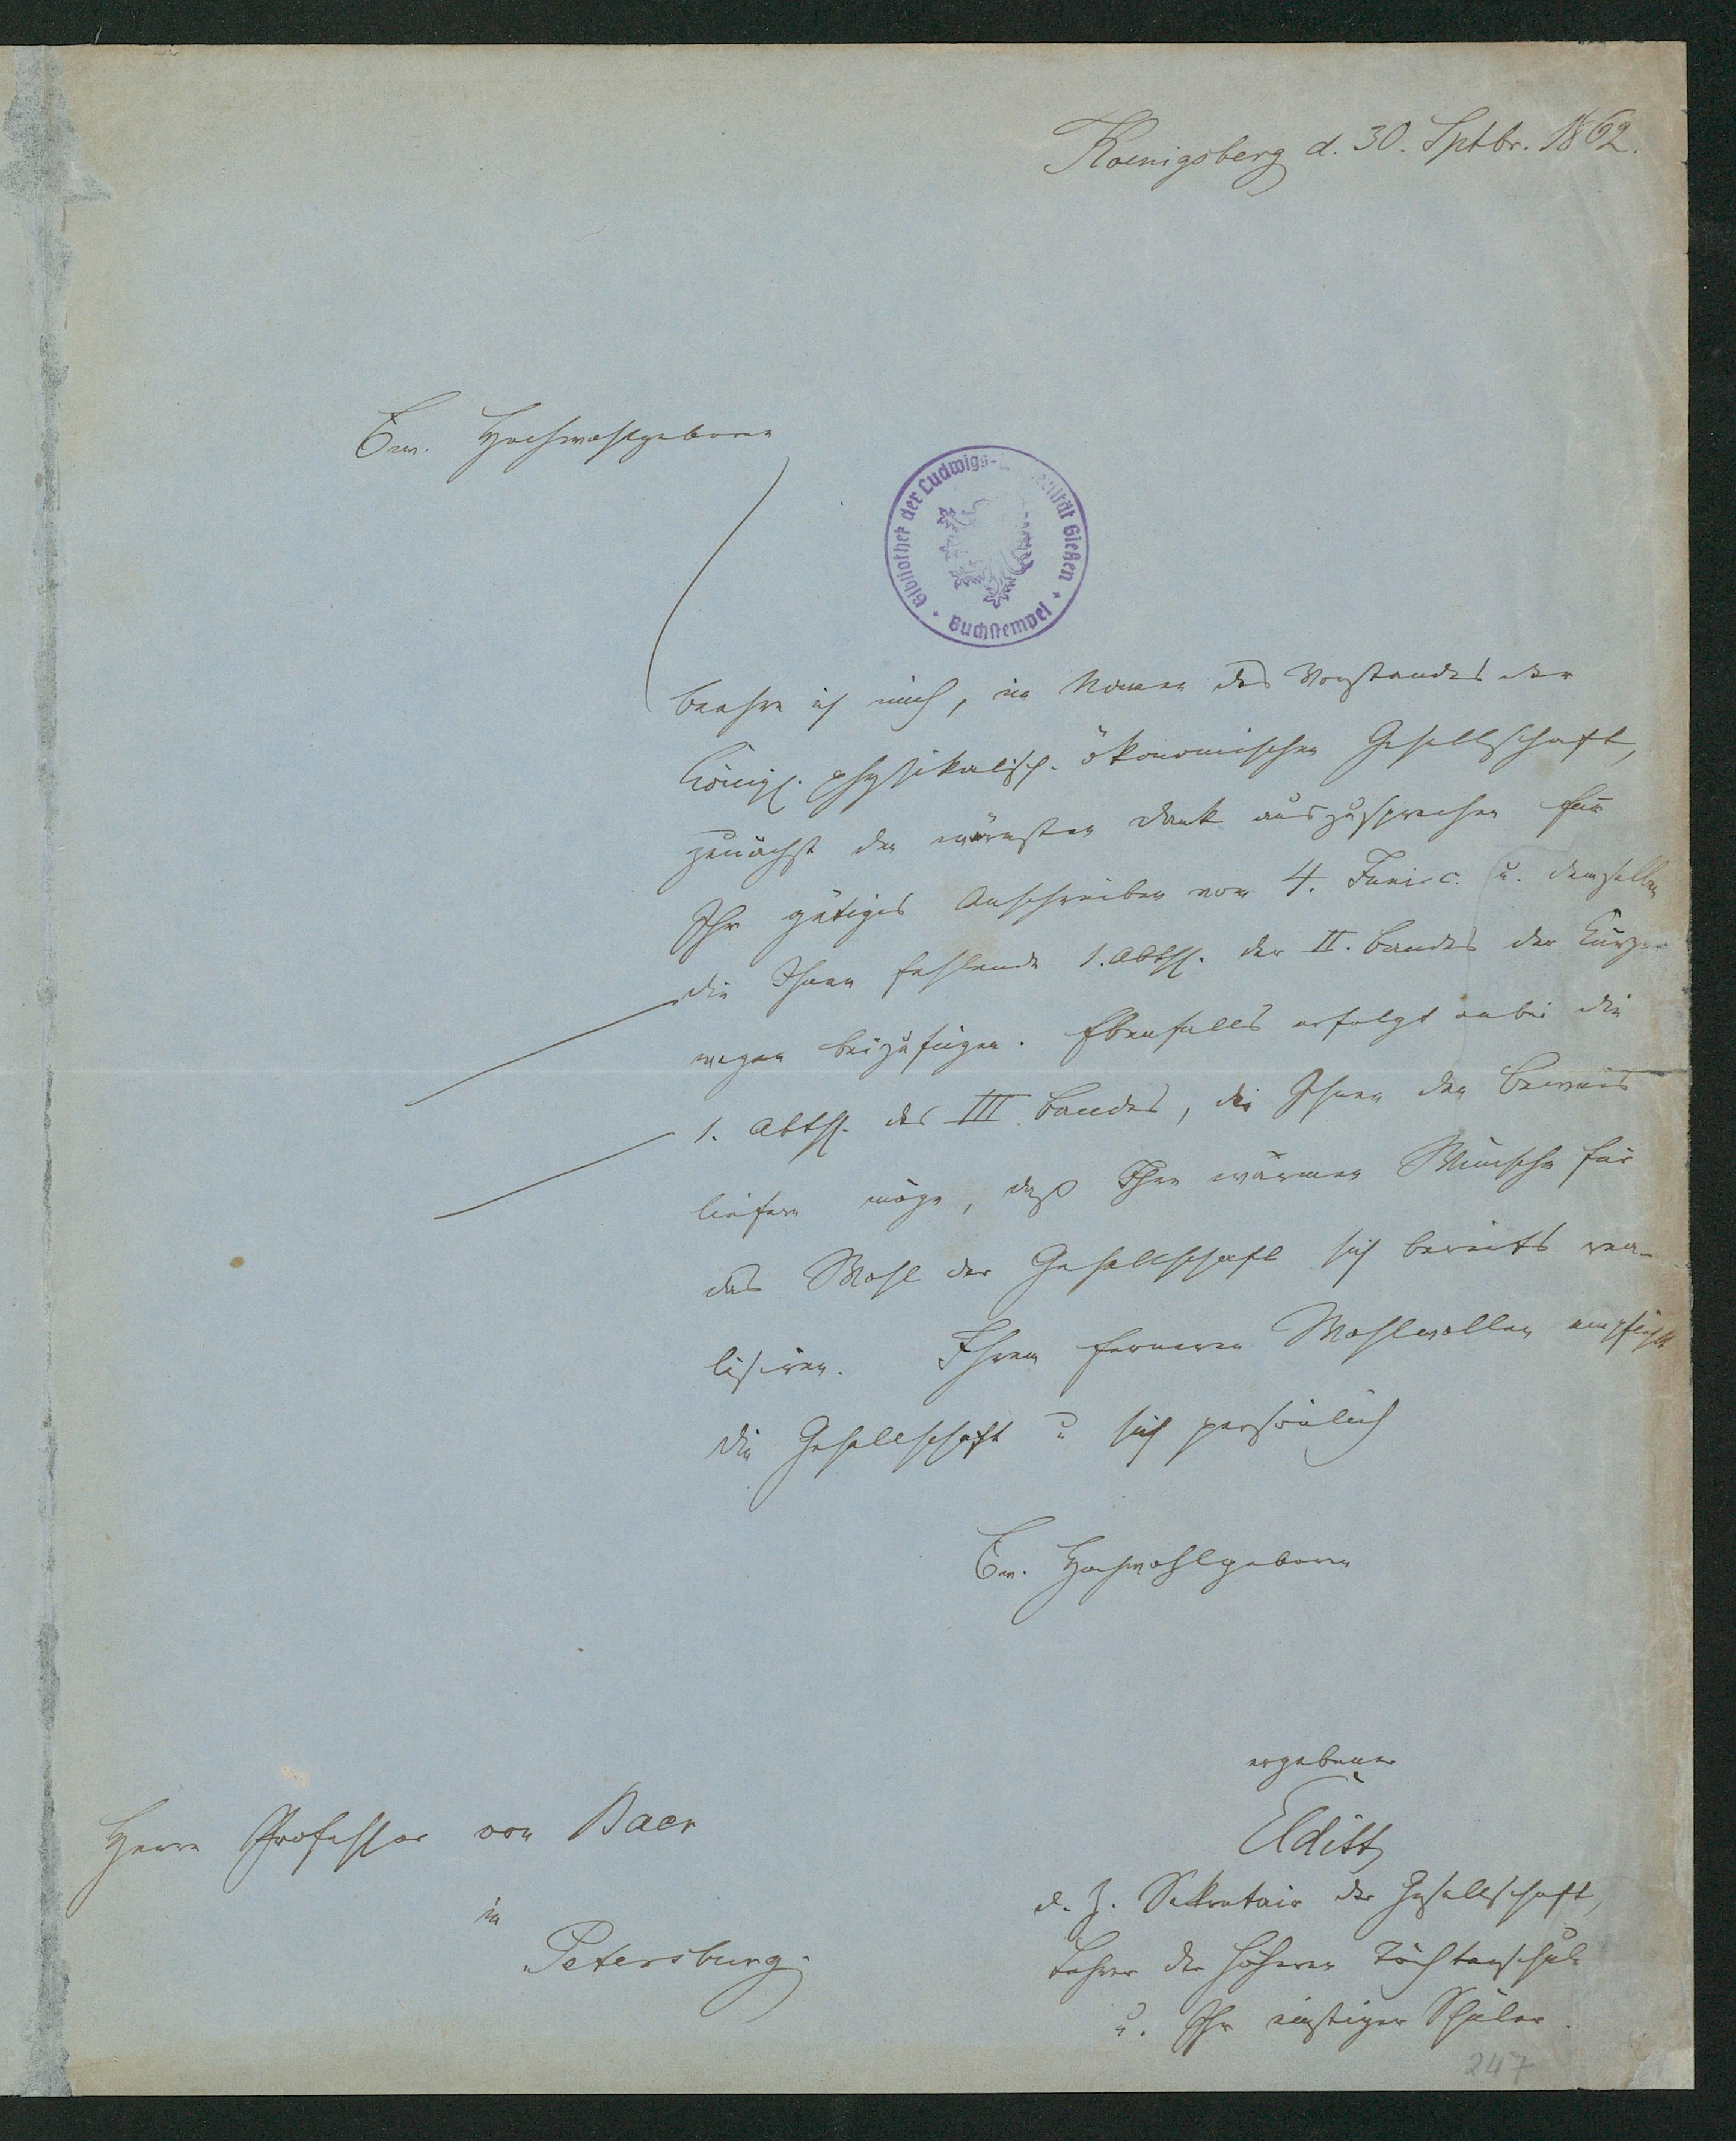 Koenigsberg d. 30. Sptbr. 1862.
Ew. Hochwohlgeboren
Bibliothek der Ludwigs- Gießen
Buchstempel
beehre ich mich, im Namen des Vorstandes der
Königl. physikalisch-ökonomischen Gesellschaft,
zunächst den wärmsten Dank auszusprechen für
Ihr gütiges Anschreiben vom 4. Juni c. u. demselben
die Ihnen fehlende 1. Abthl. des II. Bandes der Kürze
wegen beizufügen. Ebenfalls erfolgt anbei die
1. Abthl. des III. Bandes, die Ihnen den Beweis
liefern möge, daß Ihre warmen Wünsche für
das Wohl der Gesellschaft sich bereits rea-
lisiren. Ihrem ferneren Wohlwollen empfiehlt
die Gesellschaft u sich persönlich
Ew. Hochwohlgeboren
ergebener
Elditt
d. Z. Sekretair der Gesellschaft,
Lehrer der höheren Töchterschule
u. Ihr einstiger Schüler.
Herrn Professor von Baer
in
Petersburg.
247